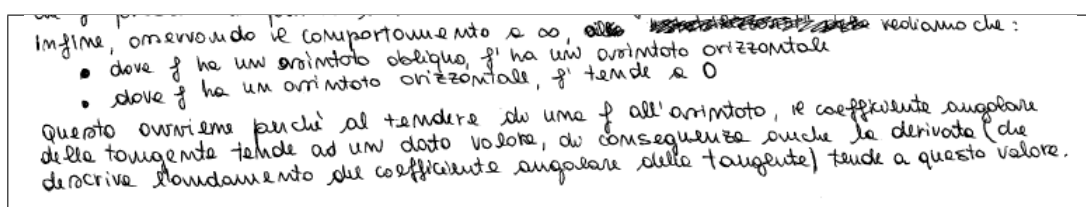 infine, osservando il comportamento a ∞, vediamo che:
• dove f ha un asintoto obliquo, f' ha un asintoto orizzontale
• dove f ha un asintoto orizzontale, f' tende a 0
Questo avviene perchè al tendere di una f all'asintoto, il coefficiente angolare
della tangente tende ad un dato valore, di conseguenza anche la derivata (che
descrive l'andamento del coefficiente angolare della tangente) tende a questo valore.